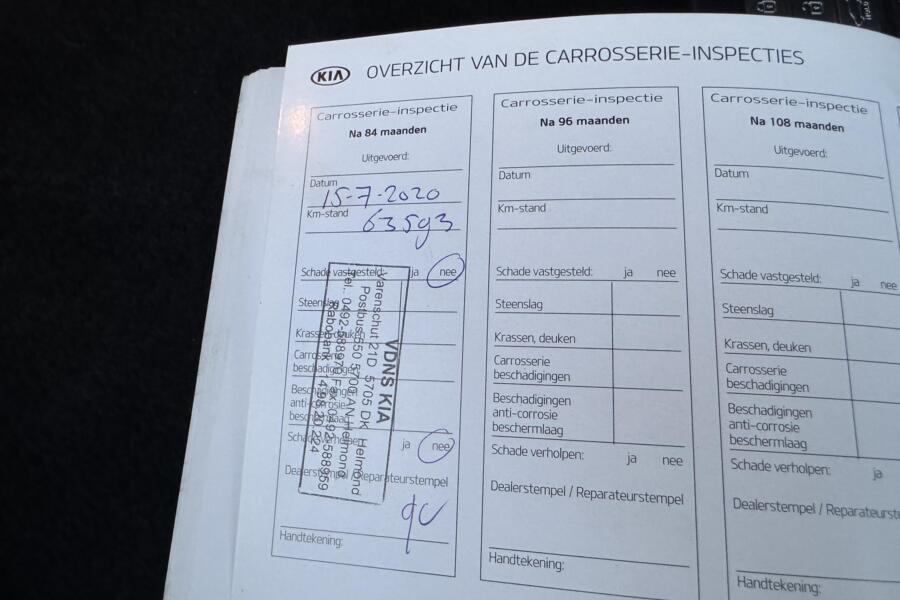 KIA OVERZICHT VAN DE CARROSSERIE-INSPECTIES
Carrosserie-inspectie
Na 84 maanden
Uitgevoerd:
Datum
15-7-2020
Km-stand
63593
Schade vastgesteld: ja nee
Steenslag
Krassen, deuken
Carrosserie
beschadigingen
Beschadigingen
anti-corrosie
beschermlaag
Schade verholpen: ja nee
Dealerstempel / Reparateurstempel
Handtekening:
VDNS KIA
Varenschut 21D 5705 DK Helmond
Postbus 550 5700 AN Helmond
Tel.: 0492-588970 Fax: 0492-588959
Carrosserie-inspectie
Na 96 maanden
Uitgevoerd:
Datum
Km-stand
Schade vastgesteld: ja nee
Steenslag
Krassen, deuken
Carrosserie
beschadigingen
Beschadigingen
anti-corrosie
beschermlaag
Schade verholpen: ja nee
Dealerstempel / Reparateurstempel
Handtekening:
Carrosserie-inspectie
Na 108 maanden
Uitgevoerd:
Datum
Km-stand
Schade vastgesteld: ja nee
Steenslag
Krassen, deuken
Carrosserie
beschadigingen
Beschadigingen
anti-corrosie
beschermlaag
Schade verholpen: ja
Dealerstempel / Reparateurst
Handtekening: